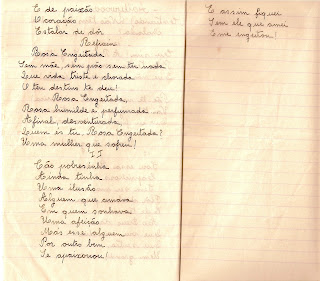 E de paixão
O coração
Estalar de dôr
Refrain
Rosa Engeitada
Sem mãe, sem pão sem ter nada
Que vida triste e chorada
O teu destino te deu!
Rosa Engeitada,
Rosa humilde e perfumada
Afinal, desventurada
Quem és tu, Rosa Engeitada?
Uma mulher que sofreu!
II
Tão pobresinha
Ainda tinha
Uma ilusão
Alguem que amava
Em quem sonhava
Uma afeição
Mas esse alguem
Por outro bem
Se apaixonou!
E assim fiquei
Sem ele que amei
E me engeitou!